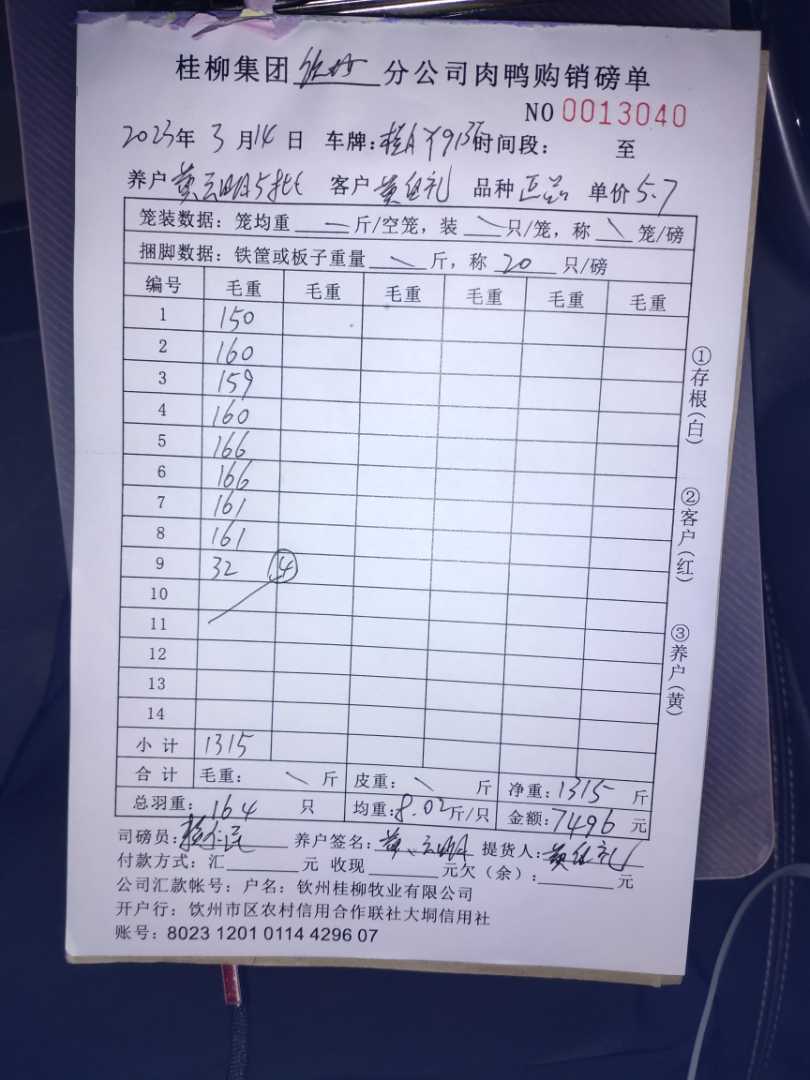 桂柳集团钦州分公司肉鸭购销磅单
NO 0013040
2023年3月14日 车牌:桂A 时间段: 至
养户黄云明5批 客户黄 礼 品种正品 单价5.7
笼装数据:笼均重 斤/空笼,装 只/笼,称 笼/磅
捆脚数据:铁筐或板子重量 斤,称 20 只/磅
编号 毛重 毛重 毛重 毛重 毛重 毛重
1 150
2 160
3 159
4 160
5 166
6 166
7 161
8 161
9 32 4
10
11
12
13
14
小计 1315
合计 毛重: 斤 皮重: 斤 净重:1315斤
总羽重:164 只 均重:8.02斤/只 金额:7496元
司磅员: 养户签名:黄云明 提货人:黄 礼
付款方式:汇 元 收现 元欠(余): 元
公司汇款帐号:户名:钦州桂柳牧业有限公司
开户行:饮州市区农村信用合作联社大垌信用社
账号:8023 1201 0114 4296 07
①存根(白)
②客户(红)
③养户(黄)